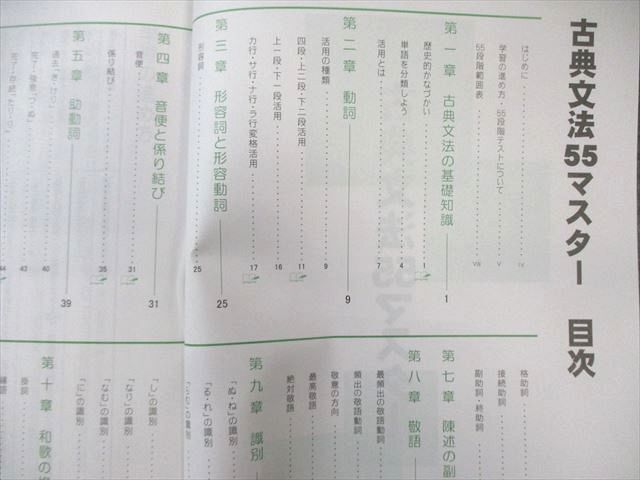 古典文法55マスター 目次
はじめに iv
学習の進め方・55段階テストについて v
55段階範囲表 vii
第一章 古典文法の基礎知識 1
歴史的かなづかい 1
単語を分類しよう 4
活用とは 7
第二章 動詞 9
活用の種類 9
四段・上二段・下二段活用 11
上一段・下一段活用 16
カ行・サ行・ナ行・ラ行変格活用 17
第三章 形容詞と形容動詞 25
形容詞 25
第四章 音便と係り結び 31
音便 31
係り結び 35
第五章 助動詞 39
過去「き・けり」 40
完了・強意「つ・ぬ」 42
完了・存続「たり・り」 44
格助詞
接続助詞
副助詞・終助詞
第七章 陳述の副
第八章 敬語
最頻出の敬語動詞
頻出の敬語動詞
敬意の方向
最高敬語
絶対敬語
第九章 識別
「ぬ・ね」の識別
「る・れ」の識別
「らむ」の識別
「し」の識別
「なり」の識別
「なむ」の識別
「に」の識別
第十章 和歌の修
掛詞
縁語